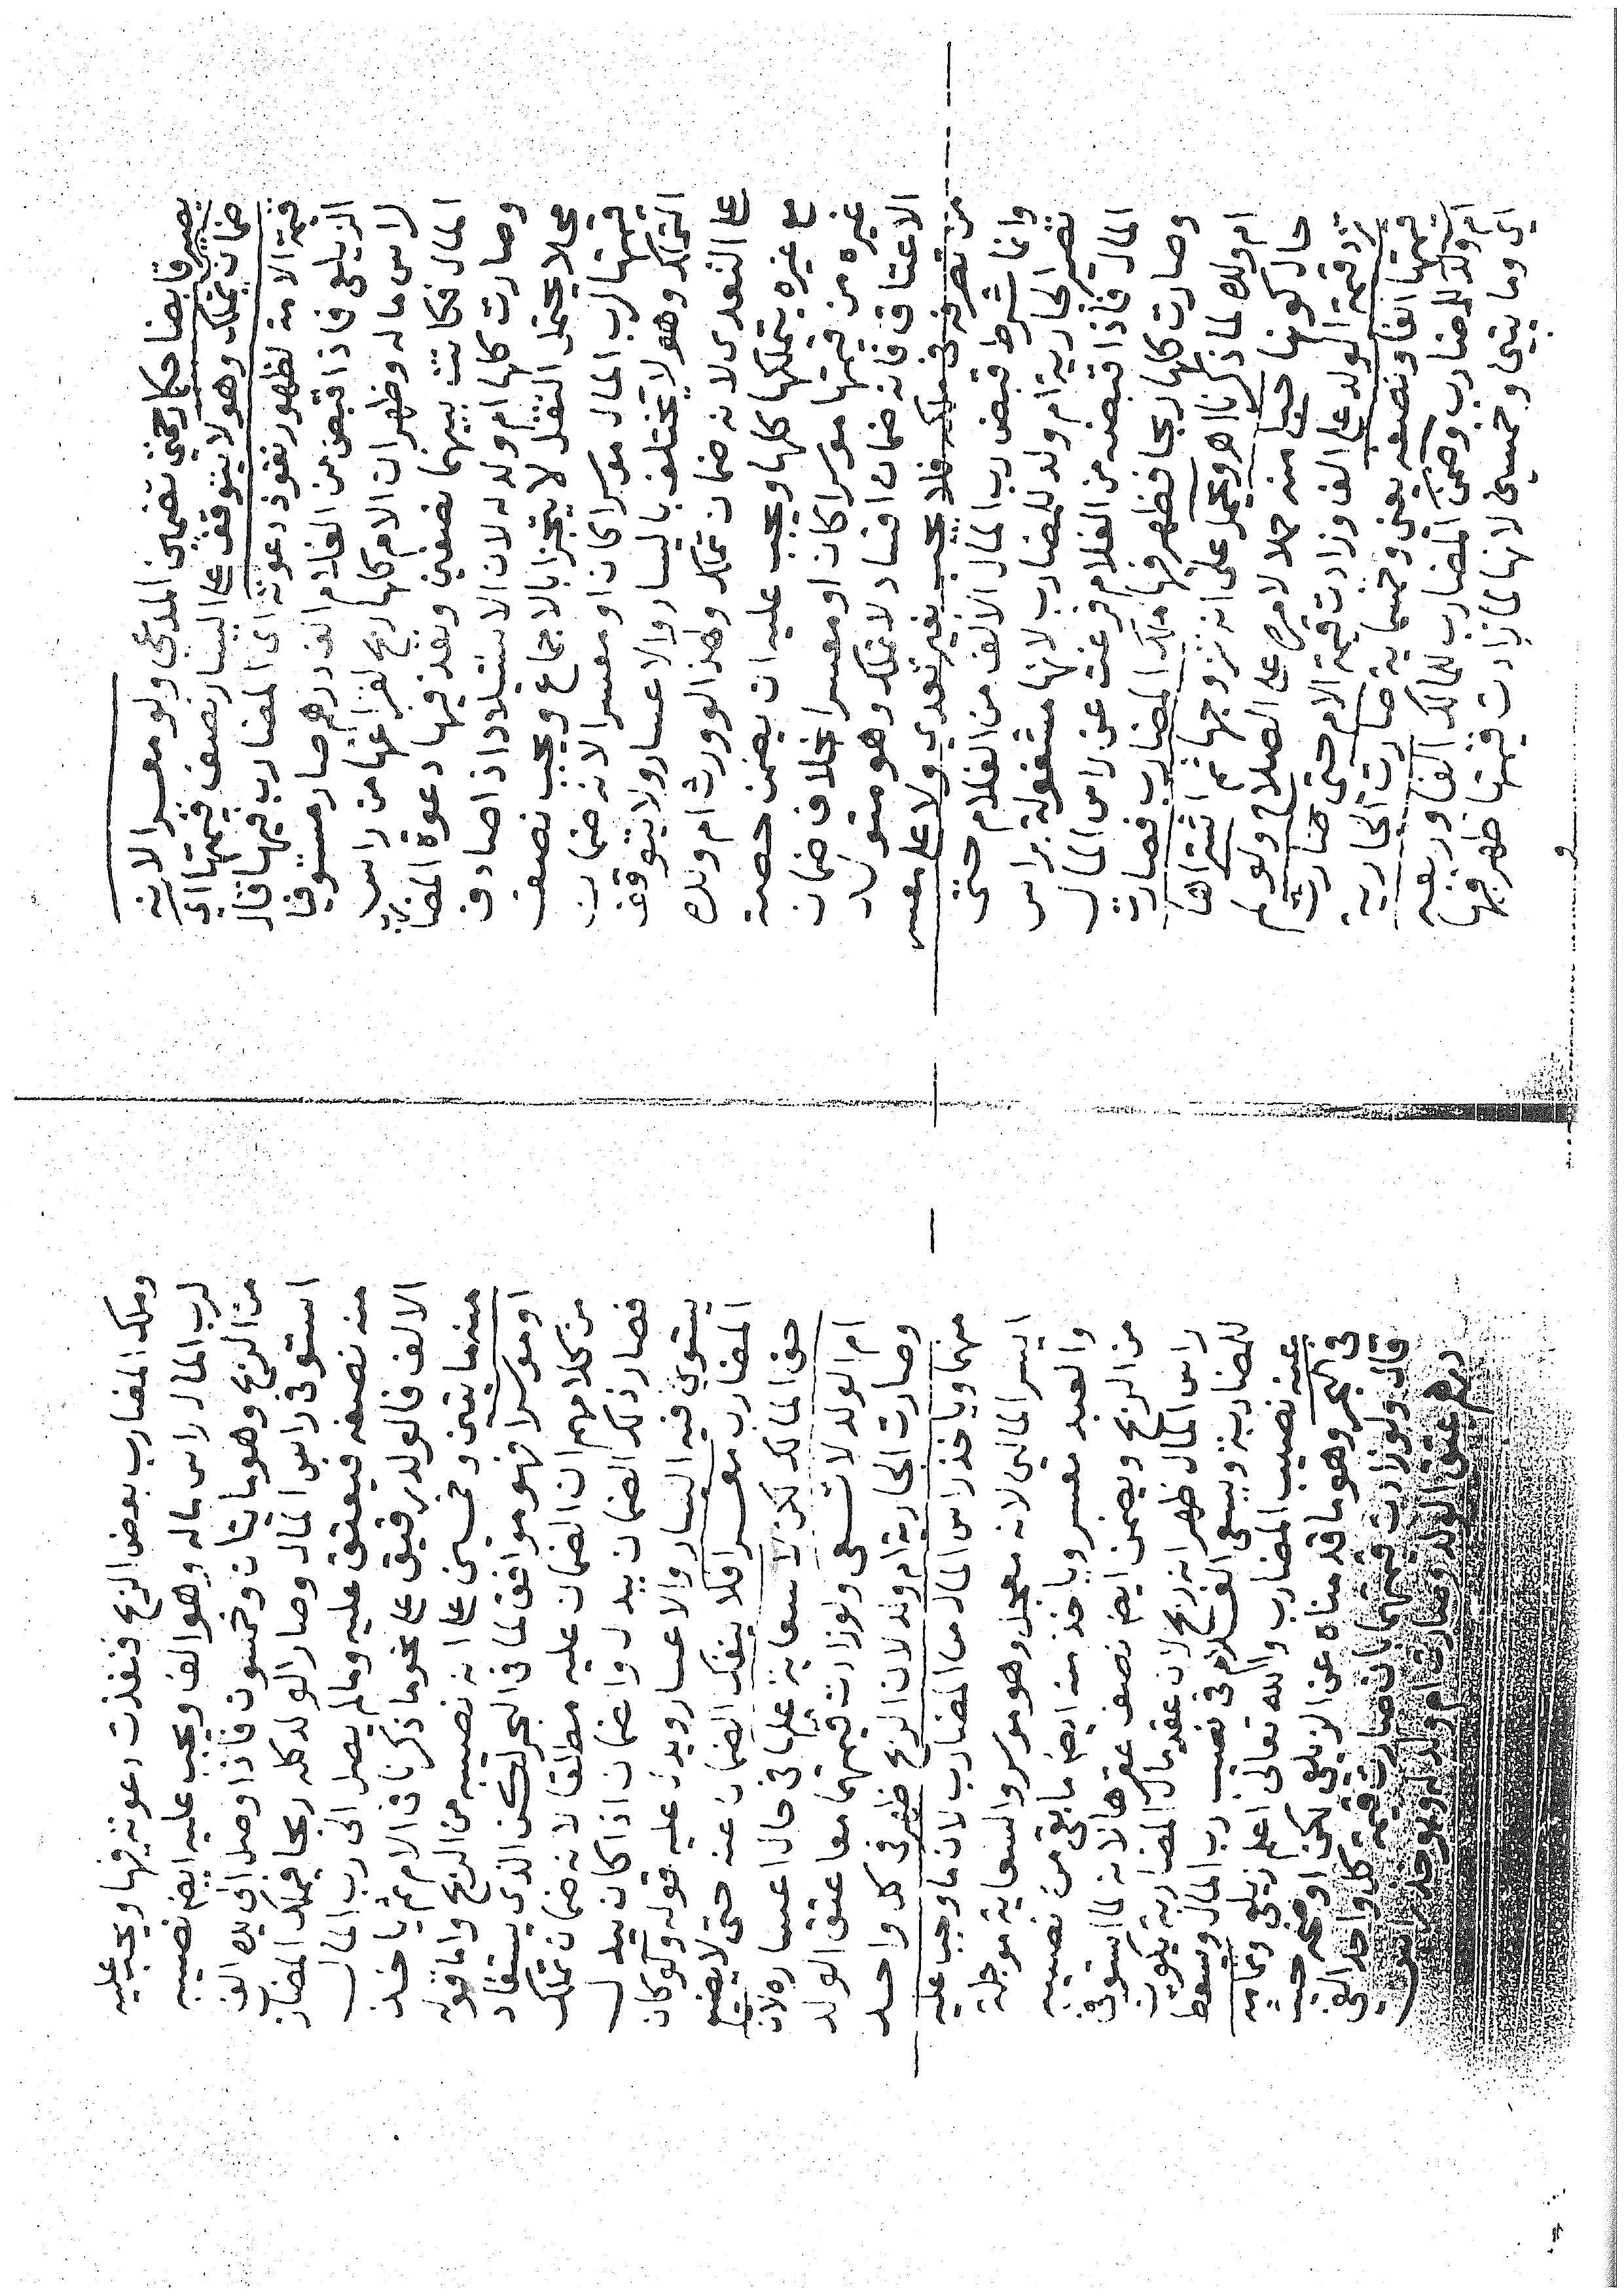 يصير قابضا حكما رحمي تضمين المدعي ولو معسرا لانه
ضمان تملك وهو لا يتوقف على اليسار نصف قيمتها اي
قيمة الامة لظهور نفوذ دعوته اي المضارب فيها قال
الزيلعي فاذا قبض من الغلام الف درهم صار مستوفيا
لراس ماله وظهر ان الام كلها ربح لفراغها من راس
المال فكانت بينهما نصفين ونفذ فيها دعوة المضارب
وصارت كلها ام ولد له لان الاستيلاد اذا صادف
محلا يحتمل النقل لا يتجزا بالاجماع ويجب نصف
قيمتها لرب المال موسرا كان او معسرا لانه ضمان
التملك وهو لا يختلف باليسار والاعسار ولا يتوقف
على التعدي لانه ضمان تملك وكذا لو ورث ام ولده
مع غيره يتملكها كلها ويجب عليه ان يضمن حصة
غيره من قيمتها موسرا كان او معسرا بخلاف ضمان
الاعتاق فانه ضمان افساد لا تملك وهو متولد
من تصرفه في ملكه فلا يجب بغير تعدي ولا على معسر
وانما شرط قبض رب المال الالف من الغلام حتى
تصير الجارية ام ولد للمضارب لانها مشغولة براس
المال فاذا قبضه من الغلام فرغت عن راس المال
وصارت كلها ربحا فظهر فيها ملك المضارب فصارت
ام ولد له لما ذكرنا اهـ ويحمل على انه تزوجها ثم اشتراها
حال كونها حبلى منه حملا لامره على الصلاح ولو لم
تزد قيمة الولد على الف وزادت قيمة الام حتى صارت
قيمتها الفا ونصفه يعني وخمسماية صارت الجارية
ام ولد للمضارب وضمن المضارب للمالك الفا وربعه
اي ومايتين وخمسين لانها لما زادت قيمتها ظهر فيها
وملك المضارب بعض الربح فنفذت دعوته فيها ويجب عليه
لرب المال راس ماله وهو الف ويجب عليه ايضا نصيبه
من الربح وهو مايتان وخمسون فاذا وصل الى يده الف
استوفى راس المال وصار الولد كله ربحا فملك المضارب
منه نصفه فيعتق عليه وما لم يصل الى رب المال
الالف فالولد رقيق على نحو ما ذكرنا في الام ثم ياخذ
منه مايتين وخمسين على انه نصيبه من الربح وما قوله
او موسرا فهو موافق لما في البحر لكن الذي يستفاد
من كلامهم ان الضمان عليه مطلقا لانه ضمان تملك
فصار ذكر الضمان بيد ل واضمان اذا كان بيد ل
يستوي فيه اليسار والاعسار ويرد عليه قوله ولو كان
المضارب معسرا فلا ينفك الضمان عنه حتى لا يضيع
حق المالك لكن لا سعاية عليها في حال اعساره لان
ام الولد لا تسعى ولو زادت قيمتهما معا عتق الولد
وصارت الجارية ام ولد لان الربح ظهر في كل واحد
منهما وياخذ راس المال من المضارب لان ما وجب عليه
ايسر المالين لانه معجل وهو موسر والسعاية موجلة
والعبد معسر وياخذ منه ايضا ما بقي من نصيبه
من الربح ويضمن ايضا نصف عقرها لانه لما استوفى
راس المال ظهر انه ربح لان عقد مال المضاربة يكون
للمضاربة ويسعى الغلام في نصيب رب المال ويسقط
عنه نصيب المضارب والله تعالى اعلم زيلعي وتمامه
في البحر وهو ما قدمناه عن الزيلعي لكن اوضح حيث
قال ولو زادت قيمتهما بان صارت قيمة كل واحد الفي
درهم عتق الولد وصارت ام ولد له وياخذ راس